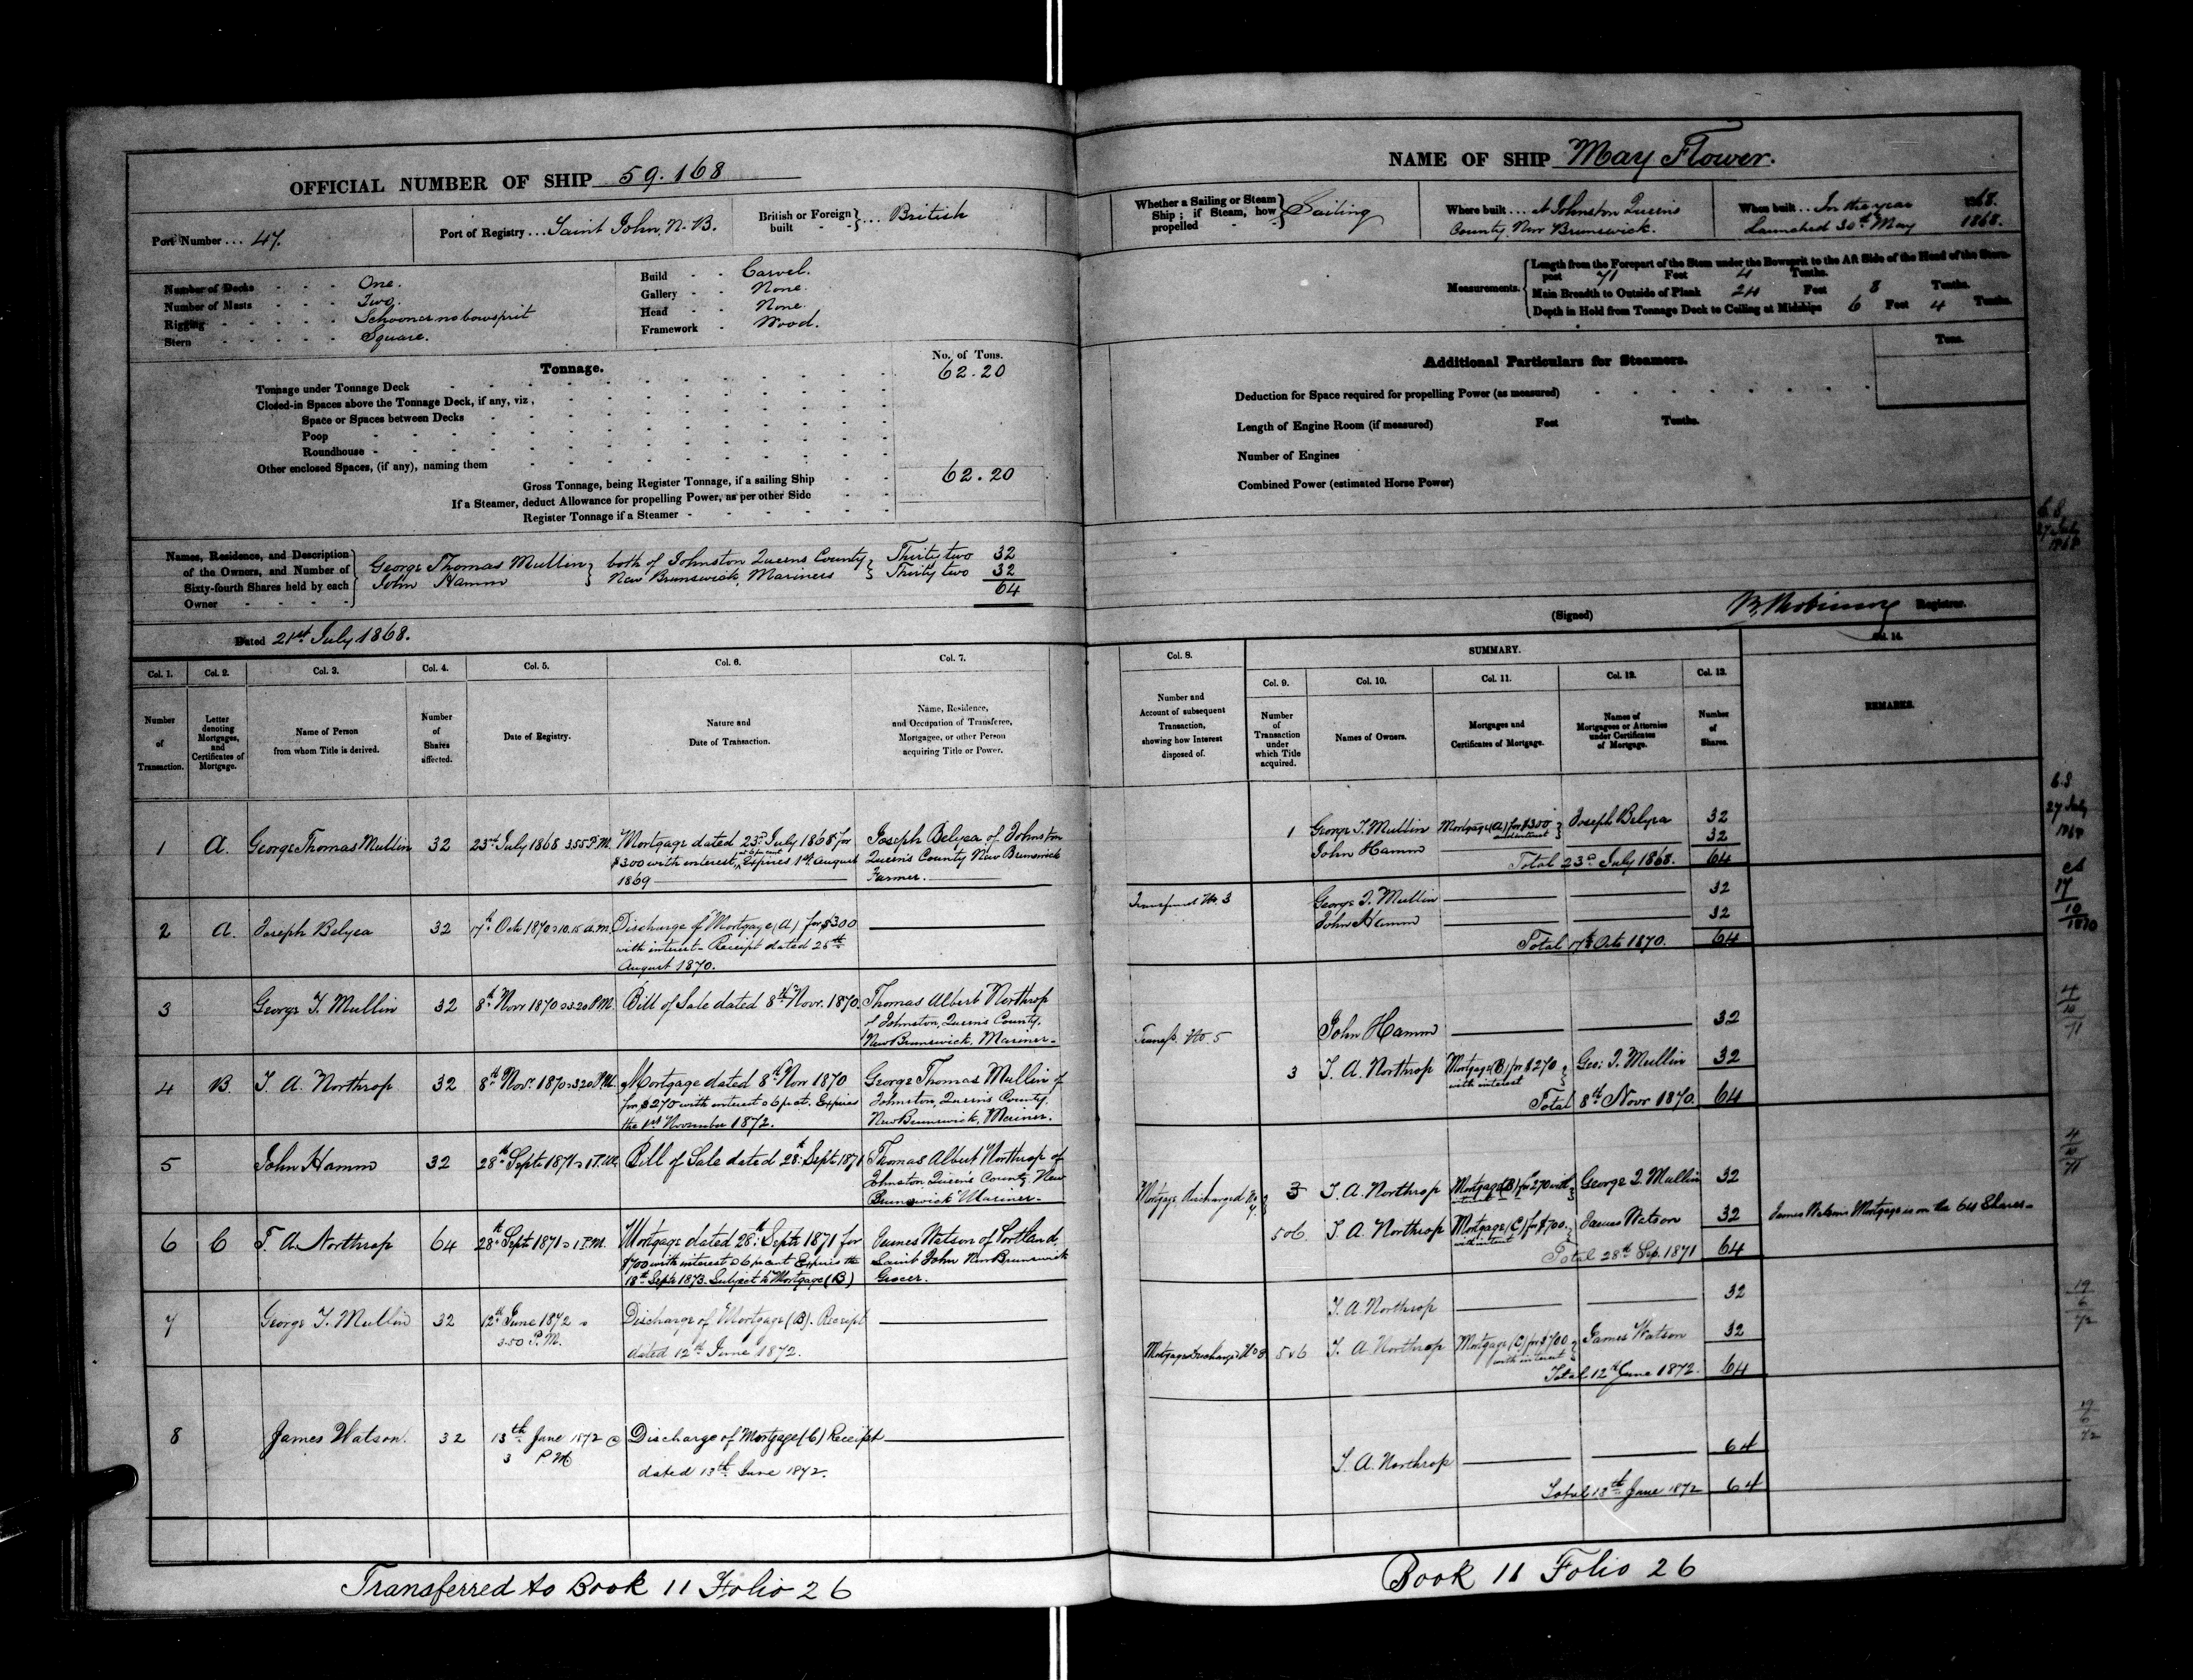 OFFICIAL NUMBER OF SHIP 59.168
Port Number ... 47.
Port of Registry ... Saint John, N.B.
British or Foreign built } ... British
Number of Decks - - - One.
Number of Masts - - - Two.
Rigging - - - Schooner no bowsprit
Stern - - - Square.
Build - - Carvel.
Gallery - - None.
Head - - None.
Framework - Wood.
Tonnage.
No. of Tons.
Tonnage under Tonnage Deck 62.20
Closed-in Spaces above the Tonnage Deck, if any, viz,
Space or Spaces between Decks
Poop
Roundhouse
Other enclosed Spaces, (if any), naming them
Gross Tonnage, being Register Tonnage, if a sailing Ship 62.20
If a Steamer, deduct Allowance for propelling Power, as per other Side
Register Tonnage if a Steamer
Names, Residence, and Description
of the Owners, and Number of
Sixty-fourth Shares held by each
Owner
George Thomas Mullin } both of Johnston Queens County } Thirty two 32
John Hamm } New Brunswick, Mariners } Thirty two 32
64
Dated 21st July 1868.
Col. 1. Col. 2. Col. 3. Col. 4. Col. 5. Col. 6. Col. 7.
Number of Transaction.
Letter denoting Mortgages, and Certificates of Mortgage.
Name of Person from whom Title is derived.
Number of Shares affected.
Date of Registry.
Nature and Date of Transaction.
Name, Residence, and Occupation of Transferee, Mortgagee, or other Person acquiring Title or Power.
1 A. George Thomas Mullin 32 23rd July 1868 3.55 P.M. Mortgage dated 23d July 1868 for Joseph Belyea of Johnston
$300 with interest, Expires 1st August Queen's County New Brunswick
1869 Farmer.
2 A. Joseph Belyea 32 17th Oct 1870 10.15 A.M. Discharge of Mortgage (A) for $300
with interest - Receipt dated 25th
August 1870.
3 George T. Mullin 32 8th Novr 1870 3.20 P.M. Bill of Sale dated 8th Novr. 1870. Thomas Albert Northrop
of Johnston, Queen's County,
New Brunswick, Mariner -
4 B. T. A. Northrop 32 8th Novr. 1870 3.20 P.M. Mortgage dated 8th Novr 1870 George Thomas Mullin of
for $270 with interest @ 6 p ct. Expires Johnston, Queen's County.
the 1st November 1872. New Brunswick, Mariner.
5 John Hamm 32 28th Septr 1871 1 P.M. Bill of Sale dated 28th Septr 1871 Thomas Albert Northrop of
Johnston, Queen's County, New
Brunswick Mariner -
6 C T. A. Northrop 64 28th Septr 1871 1 P.M. Mortgage dated 28th Septr 1871 for James Watson of Portland,
$700 with interest @ 6 p cent Expires the Saint John New Brunswick
18th Septr 1873. Subject to Mortgage (B) Grocer.
7 George T. Mullin 32 12th June 1872 Discharge of Mortgage (B). Receipt
3.50 P.M. dated 12th June 1872.
8 James Watson. 32 13th June 1872 @ Discharge of Mortgage (C) Receipt
3 P M dated 13th June 1872.
Transferred to Book 11 Folio 26
NAME OF SHIP May Flower.
Whether a Sailing or Steam Ship; if Steam, how propelled } Sailing
Where built ... at Johnston Queens
County, New Brunswick.
When built ... In the year 1868.
Launched 30th May 1868.
Measurements.
Length from the Forepart of the Stem under the Bowsprit to the Aft Side of the Head of the Stern-
post 71 Feet 4 Tenths.
Main Breadth to Outside of Plank 24 Feet 8 Tenths.
Depth in Hold from Tonnage Deck to Ceiling at Midships 6 Feet 4 Tenths.
Additional Particulars for Steamers.
Tons.
Deduction for Space required for propelling Power (as measured)
Length of Engine Room (if measured) Feet Tenths.
Number of Engines
Combined Power (estimated Horse Power)
(Signed) Registrar.
SUMMARY.
Col. 8. Col. 9. Col. 10. Col. 11. Col. 12. Col. 13. Col. 14.
Number and Account of subsequent Transaction, showing how Interest disposed of.
Number of Transaction under which Title acquired.
Names of Owners.
Mortgages and Certificates of Mortgage.
Names of Mortgagees or Attornies under Certificates of Mortgage.
Number of Shares.
REMARKS.
1 George T. Mullin Mortgage (A) for $300 } Joseph Belyea 32
John Hamm 32
Total 23d July 1868. 64
Transferred No. 3 George T. Mullin 32
John Hamm 32
Total 17th Octr 1870. 64
Transfd. No. 5 John Hamm 32
3 T. A. Northrop Mortgage (B) for $270 with interest } Geo: T. Mullin 32
Total 8th Novr 1870. 64
Mortgage discharged No 7. 3 T. A. Northrop Mortgage (B) for 270 with } George T. Mullin 32
5 & 6 T. A. Northrop Mortgage (C) for $700. with interest } James Watson 32 James Watson's Mortgage is on the 64 Shares -
Total 28th Sep. 1871 64
T. A Northrop 32
Mortgage Discharged No 8. 5 & 6 T. A Northrop Mortgage (C) for $700 with interest } James Watson 32
Total 12th June 1872. 64
T. A. Northrop 64
Total 13th June 1872 64
Book 11 Folio 26